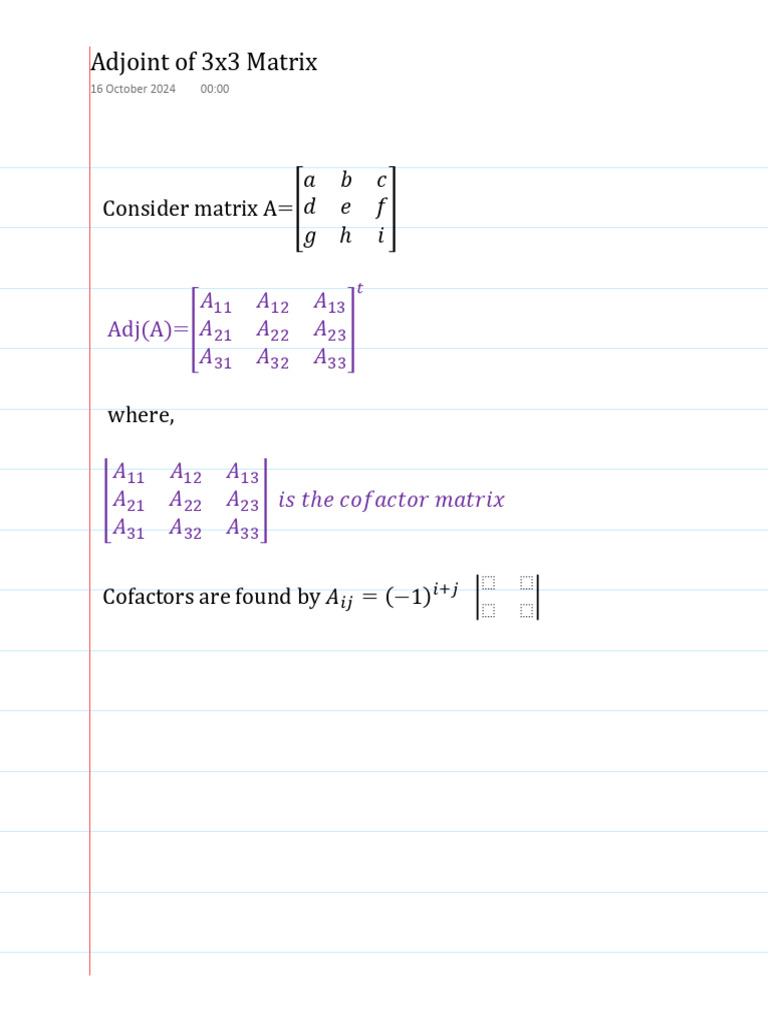 Adjoint of 3x3 Matrix
16 October 2024 00:00
Consider matrix A=[a b c
d e f
g h i]
Adj(A)=[A₁₁ A₁₂ A₁₃
A₂₁ A₂₂ A₂₃
A₃₁ A₃₂ A₃₃]ᵗ
where,
|A₁₁ A₁₂ A₁₃
A₂₁ A₂₂ A₂₃
A₃₁ A₃₂ A₃₃| is the cofactor matrix
Cofactors are found by Aᵢⱼ = (−1)ⁱ⁺ʲ |⬚ ⬚
⬚ ⬚|